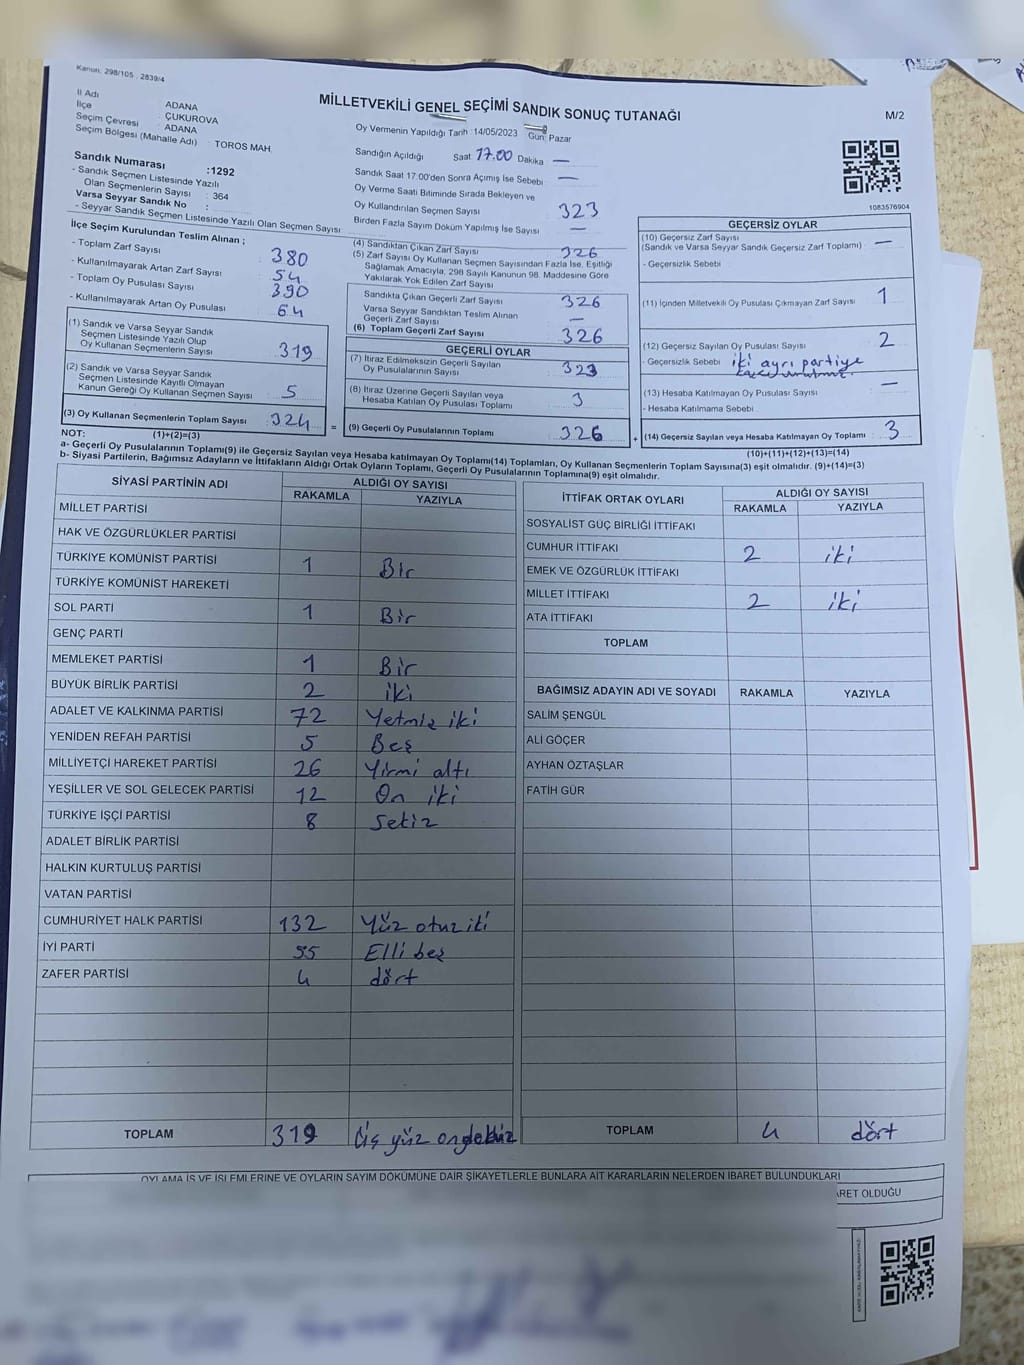 Kanun: 298/105 , 2839/4
MİLLETVEKİLİ GENEL SEÇİMİ SANDIK SONUÇ TUTANAĞI
M/2
İl Adı : ADANA
İlçe : ÇUKUROVA
Seçim Çevresi : ADANA
Seçim Bölgesi (Mahalle Adı) : TOROS MAH.
Sandık Numarası :1292
- Sandık Seçmen Listesinde Yazılı
Olan Seçmenlerin Sayısı : 364
Varsa Seyyar Sandık No :
- Seyyar Sandık Seçmen Listesinde Yazılı Olan Seçmen Sayısı :
Oy Vermenin Yapıldığı Tarih :14/05/2023 Gün: Pazar
Sandığın Açıldığı Saat 17.00 Dakika —
Sandık Saat 17:00'den Sonra Açımış İse Sebebi —
Oy Verme Saati Bitiminde Sırada Bekleyen ve
Oy Kullandırılan Seçmen Sayısı 323
Birden Fazla Sayım Döküm Yapılmış İse Sayısı —
1083576904
İlçe Seçim Kurulundan Teslim Alınan ;
- Toplam Zarf Sayısı : 380
- Kullanılmayarak Artan Zarf Sayısı : 54
- Toplam Oy Pusulası Sayısı : 390
- Kullanılmayarak Artan Oy Pusulası : 64
(1) Sandık ve Varsa Seyyar Sandık
Seçmen Listesinde Yazılı Olup
Oy Kullanan Seçmenlerin Sayısı 319
(2) Sandık ve Varsa Seyyar Sandık
Seçmen Listesinde Kayıtlı Olmayan
Kanun Gereği Oy Kullanan Seçmen Sayısı 5
(3) Oy Kullanan Seçmenlerin Toplam Sayısı 324 =
(4) Sandıktan Çıkan Zarf Sayısı 326
(5) Zarf Sayısı Oy Kullanan Seçmen Sayısından Fazla İse, Eşitliği
Sağlamak Amacıyla, 298 Sayılı Kanunun 98. Maddesine Göre
Yakılarak Yok Edilen Zarf Sayısı
Sandıkta Çıkan Geçerli Zarf Sayısı 326
Varsa Seyyar Sandıktan Teslim Alınan
Geçerli Zarf Sayısı —
(6) Toplam Geçerli Zarf Sayısı 326
GEÇERLİ OYLAR
(7) İtiraz Edilmeksizin Geçerli Sayılan
Oy Pusulalarının Sayısı 323
(8) İtiraz Üzerine Geçerli Sayılan veya
Hesaba Katılan Oy Pusulası Toplamı 3
(9) Geçerli Oy Pusulalarının Toplamı 326 +
GEÇERSİZ OYLAR
(10) Geçersiz Zarf Sayısı
(Sandık ve Varsa Seyyar Sandık Geçersiz Zarf Toplamı) —
- Geçersizlik Sebebi :
(11) İçinden Milletvekili Oy Pusulası Çıkmayan Zarf Sayısı 1
(12) Geçersiz Sayılan Oy Pusulası Sayısı 2
- Geçersizlik Sebebi : iki ayrı partiye
(13) Hesaba Katılmayan Oy Pusulası Sayısı —
- Hesaba Katılmama Sebebi
(14) Geçersiz Sayılan veya Hesaba Katılmayan Oy Toplamı 3
NOT: (1)+(2)=(3)
(10)+(11)+(12)+(13)=(14)
a- Geçerli Oy Pusulaları Toplamı(9) ile Geçersiz Sayılan veya Hesaba katılmayan Oy Toplamı(14) Toplamları, Oy Kullanan Seçmenlerin Toplam Sayısına(3) eşit olmalıdır. (9)+(14)=(3)
b- Siyasi Partilerin, Bağımsız Adayların ve İttifakların Aldığı Ortak Oyların Toplamı, Geçerli Oy Pusulalarının Toplamına(9) eşit olmalıdır.
SİYASİ PARTİNİN ADI
ALDIĞI OY SAYISI
RAKAMLA YAZIYLA
MİLLET PARTİSİ
HAK VE ÖZGÜRLÜKLER PARTİSİ
TÜRKİYE KOMÜNİST PARTİSİ 1 Bir
TÜRKİYE KOMÜNİST HAREKETİ
SOL PARTİ 1 Bir
GENÇ PARTİ
MEMLEKET PARTİSİ 1 Bir
BÜYÜK BİRLİK PARTİSİ 2 iki
ADALET VE KALKINMA PARTİSİ 72 Yetmiş iki
YENİDEN REFAH PARTİSİ 5 Beş
MİLLİYETÇİ HAREKET PARTİSİ 26 Yirmi altı
YEŞİLLER VE SOL GELECEK PARTİSİ 12 On iki
TÜRKİYE İŞÇİ PARTİSİ 8 sekiz
ADALET BİRLİK PARTİSİ
HALKIN KURTULUŞ PARTİSİ
VATAN PARTİSİ
CUMHURİYET HALK PARTİSİ 132 Yüz otuz iki
İYİ PARTİ 55 Elli beş
ZAFER PARTİSİ 4 dört
TOPLAM 319 Üç yüz ondokuz
İTTİFAK ORTAK OYLARI
ALDIĞI OY SAYISI
RAKAMLA YAZIYLA
SOSYALİST GÜÇ BİRLİĞİ İTTİFAKI
CUMHUR İTTİFAKI 2 iki
EMEK VE ÖZGÜRLÜK İTTİFAKI
MİLLET İTTİFAKI 2 iki
ATA İTTİFAKI
TOPLAM
BAĞIMSIZ ADAYIN ADI VE SOYADI RAKAMLA YAZIYLA
SALİM ŞENGÜL
ALİ GÖÇER
AYHAN ÖZTAŞLAR
FATİH GÜR
TOPLAM 4 dört
OYLAMA İŞ VE İŞLEMLERİNE VE OYLARIN SAYIM DÖKÜMÜNE DAİR ŞİKAYETLERLE BUNLARA AİT KARARLARIN NELERDEN İBARET BULUNDUKLARI
ARET OLDUĞU